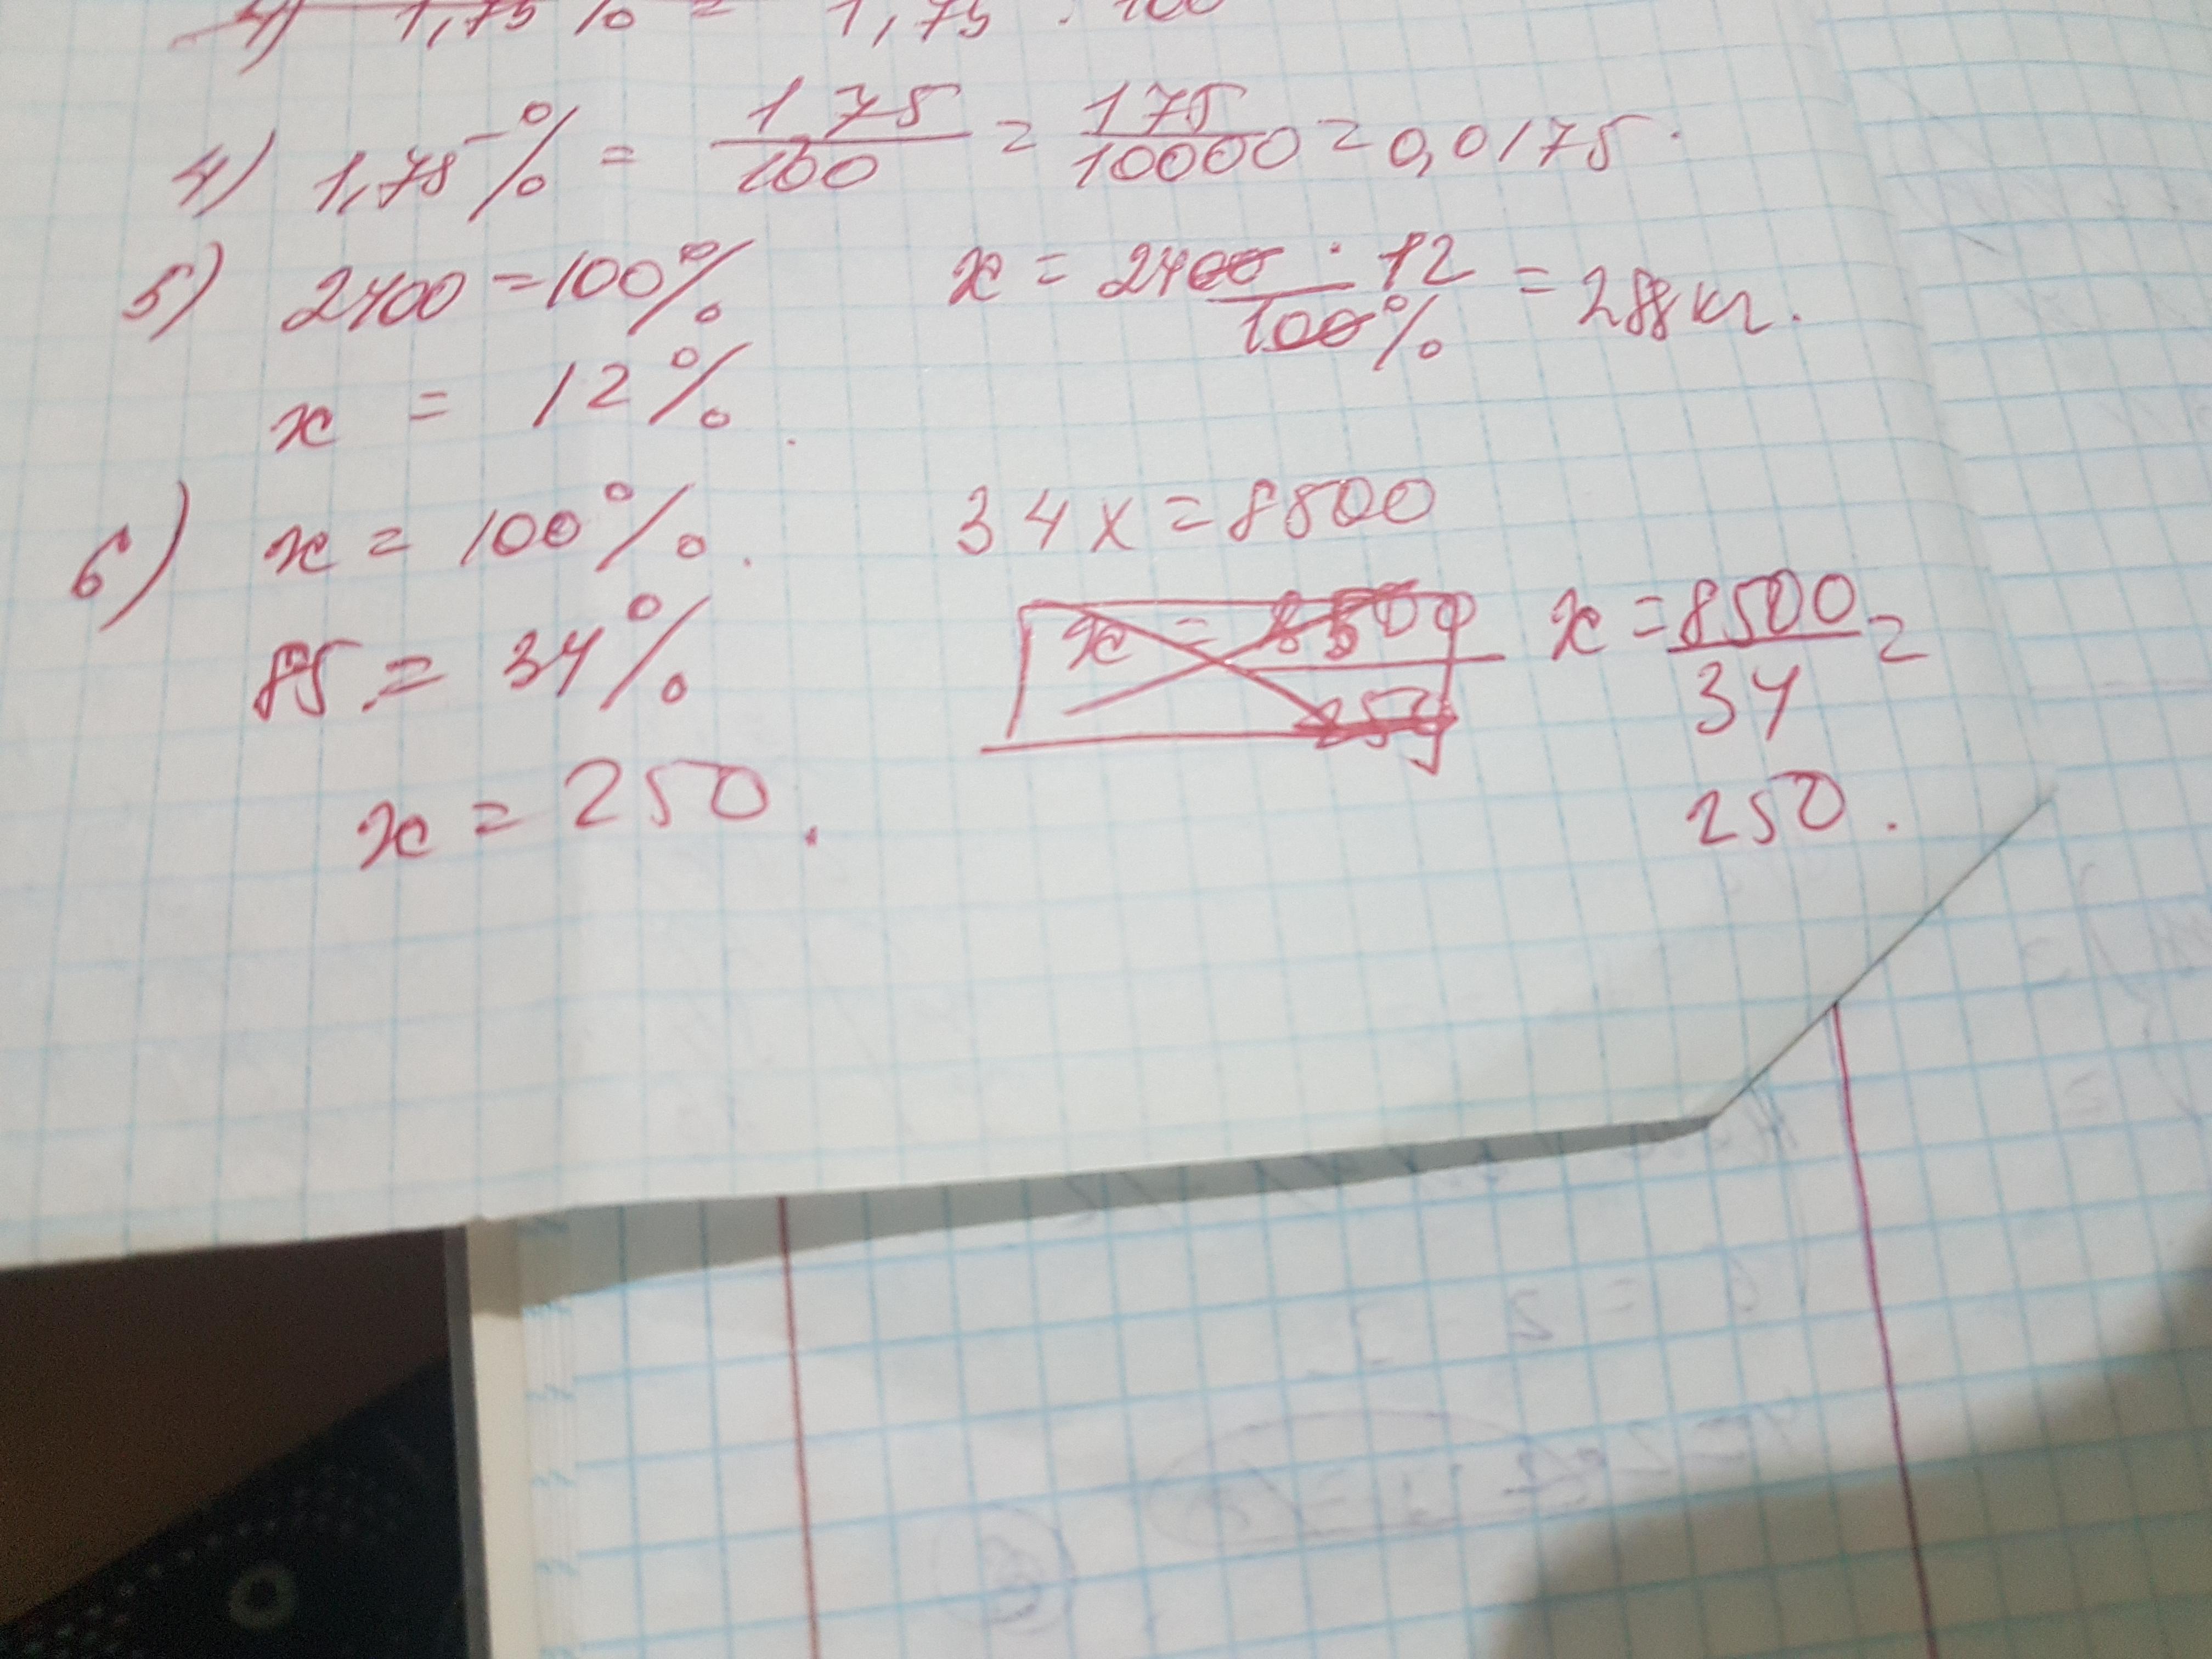 4) 1,75% = 1,75 : 100
4) 1,75% = 1,75/100 = 175/10000 = 0,0175.
5) 2400 – 100% x = 2400 · 12/100% = 288 кг.
x = 12%.
6) x = 100%. 34x = 8500
85 = 34% x = 8500/34 =
x = 250. 250.